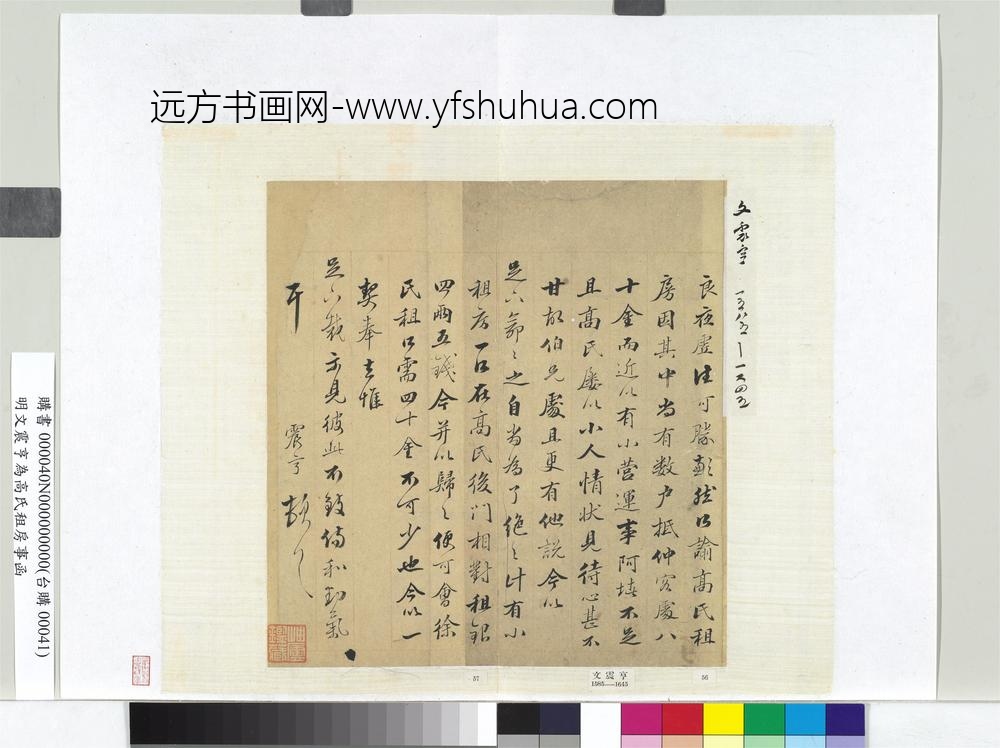 远方书画网-www.yfshuhua.com
文震亨 一五八五—一六四五
良夜虛往可勝歉然只諭高氏租
房因其中尚有数户抵仲宮處八
十金而近以有小營運事阿堵不足
且高氏屡以小人情状見待心甚不
甘故伯兄處且更有他說今以
足下命之自当為了絶之计有小
租房一口在高氏後门相對租銀
四兩五錢今并以歸之便可會徐
民租只需四十金不可少也今以一
契奉去惟
足下裁示見彼此不致傷和動氣
耳
震亨頓首
文震亨
1585—1645
56
57
購書 000040N000000000(台購 00041)
明文震亨為高氏租房事函